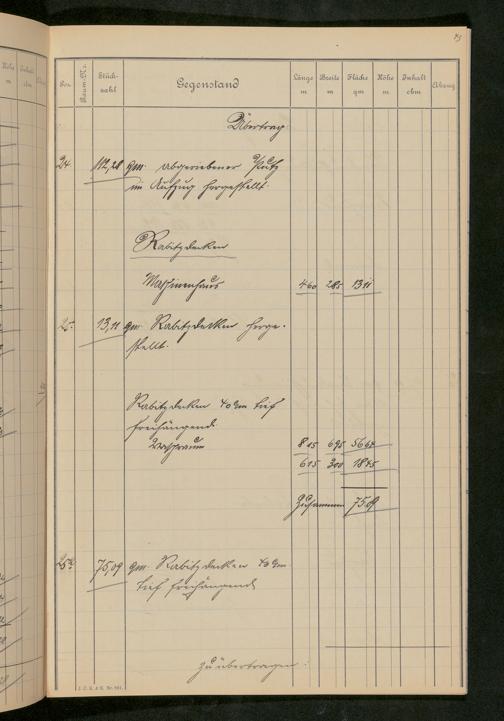 Pos. Raum-Nr. Stückzahl Gegenstand Länge m Breite m Fläche qm Höhe m Inhalt cbm Abzug
Übertrag
24. 112,28 qm abgeriebener Putz
im Aufzug hergestellt.
Rabitzdecken
Maschinenhaus 4 60 2 85 13 11
25. 13,11 qm Rabitzdecken herge-
stellt.
Rabitzdecken 40 cm tief
freihängend
8 15 6 95 56 64
6 15 3 00 18 45
Zusammen 75 09
25a. 75,09 qm Rabitzdecken 40 cm
tief freihängend
zu übertragen: